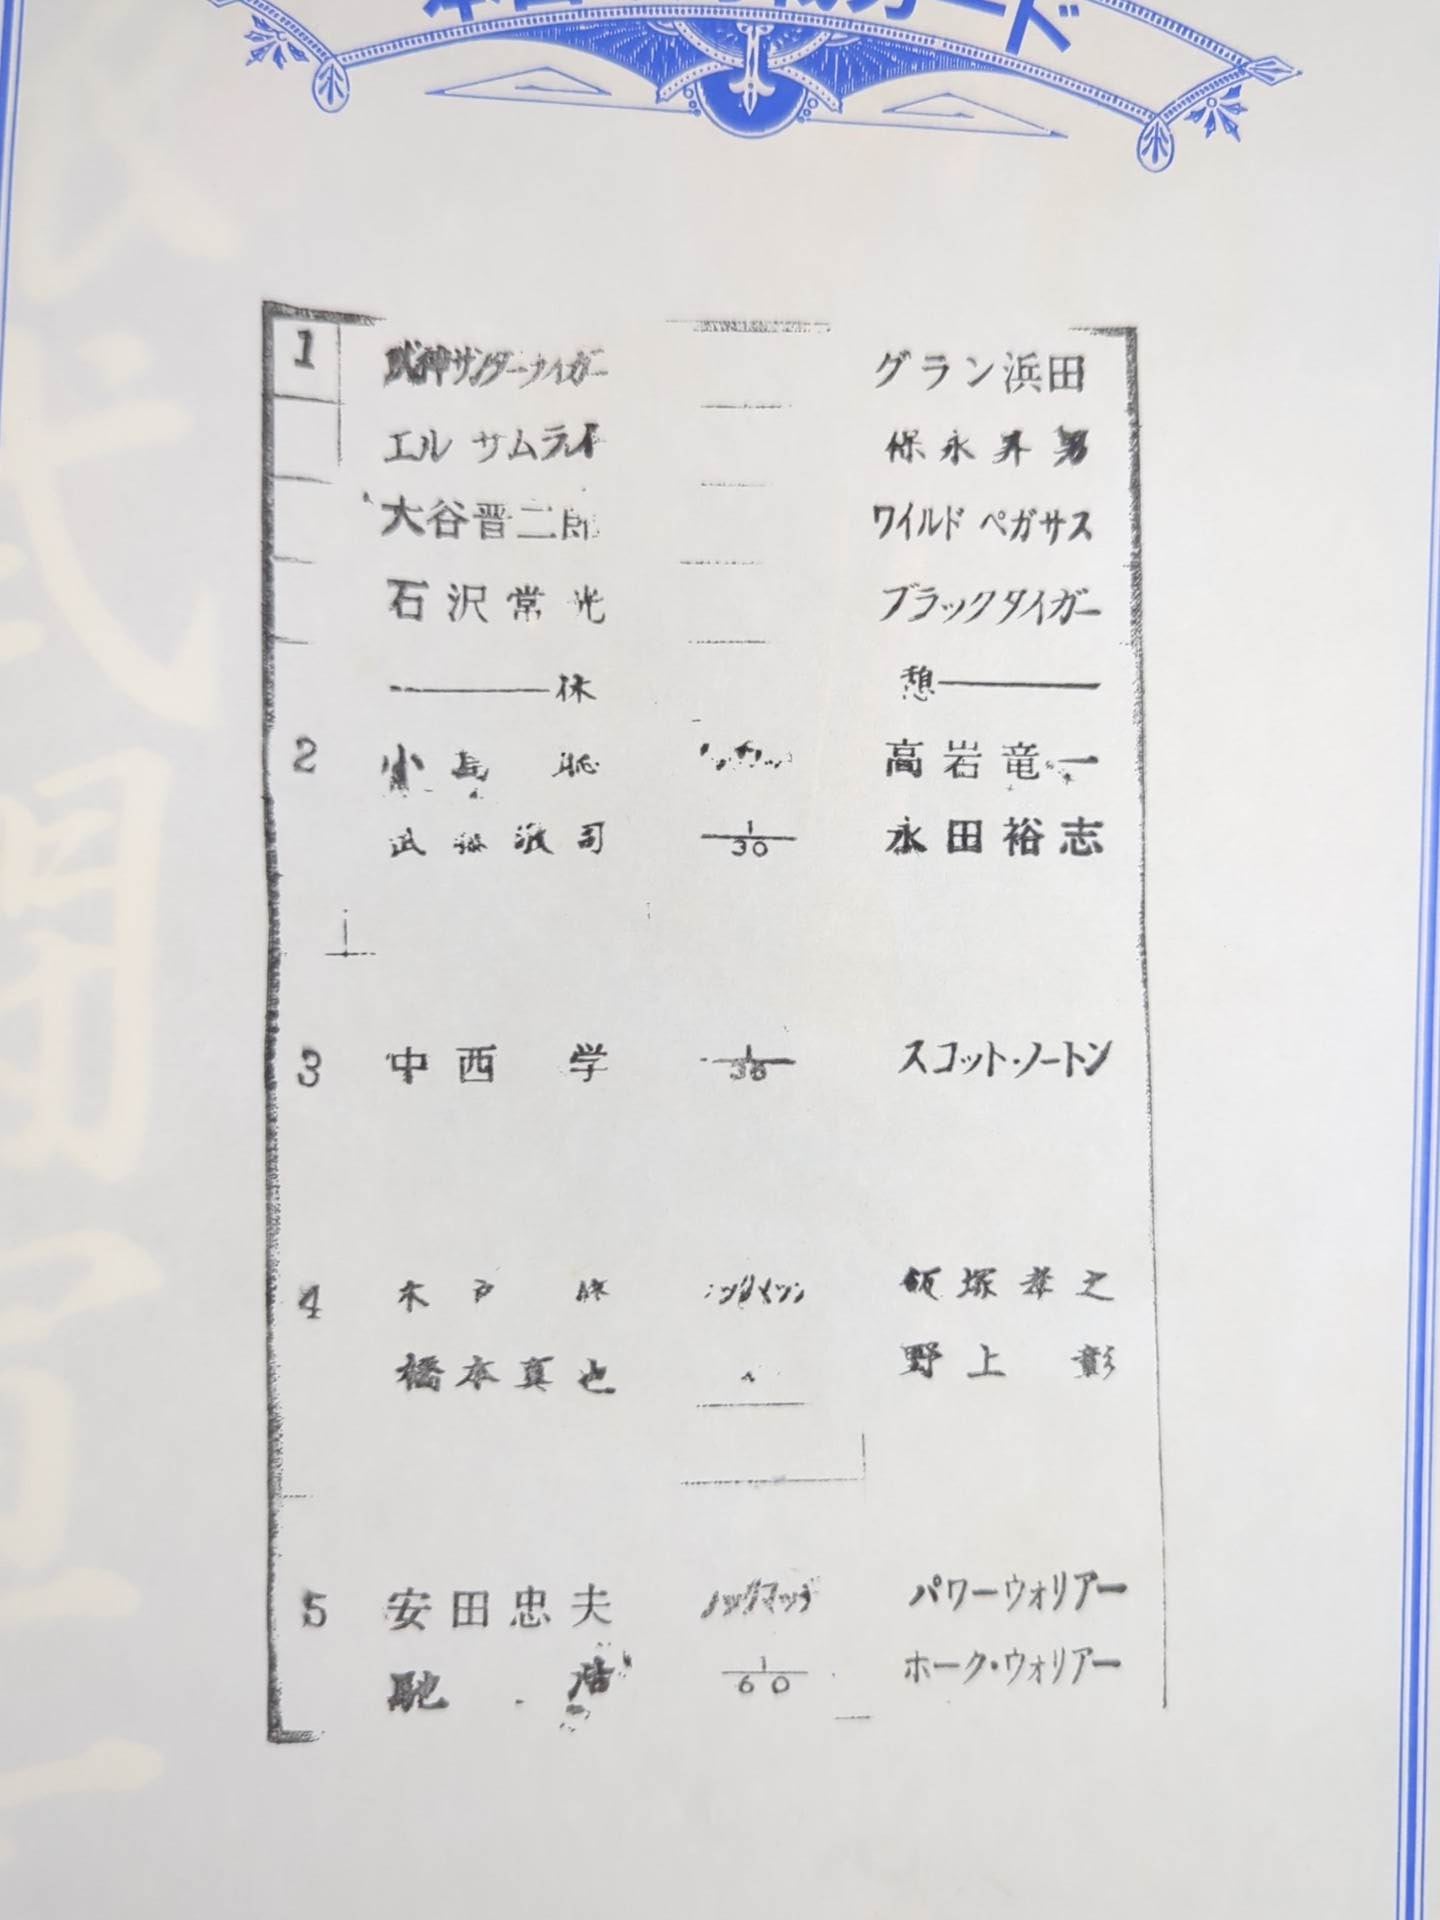 カード
1 獣神サンダーライガー グラン浜田
エル サムライ 保永昇男
大谷晋二郎 ワイルド ペガサス
石沢常光 ブラックタイガー
休 憩
2 小島 聡 高岩竜一
武藤敬司 1/30 永田裕志
3 中西 学 1/30 スコット・ノートン
4 木戸 修 飯塚孝之
橋本真也 野上 彰
5 安田忠夫 パワーウォリアー
馳 浩 1/60 ホーク・ウォリアー